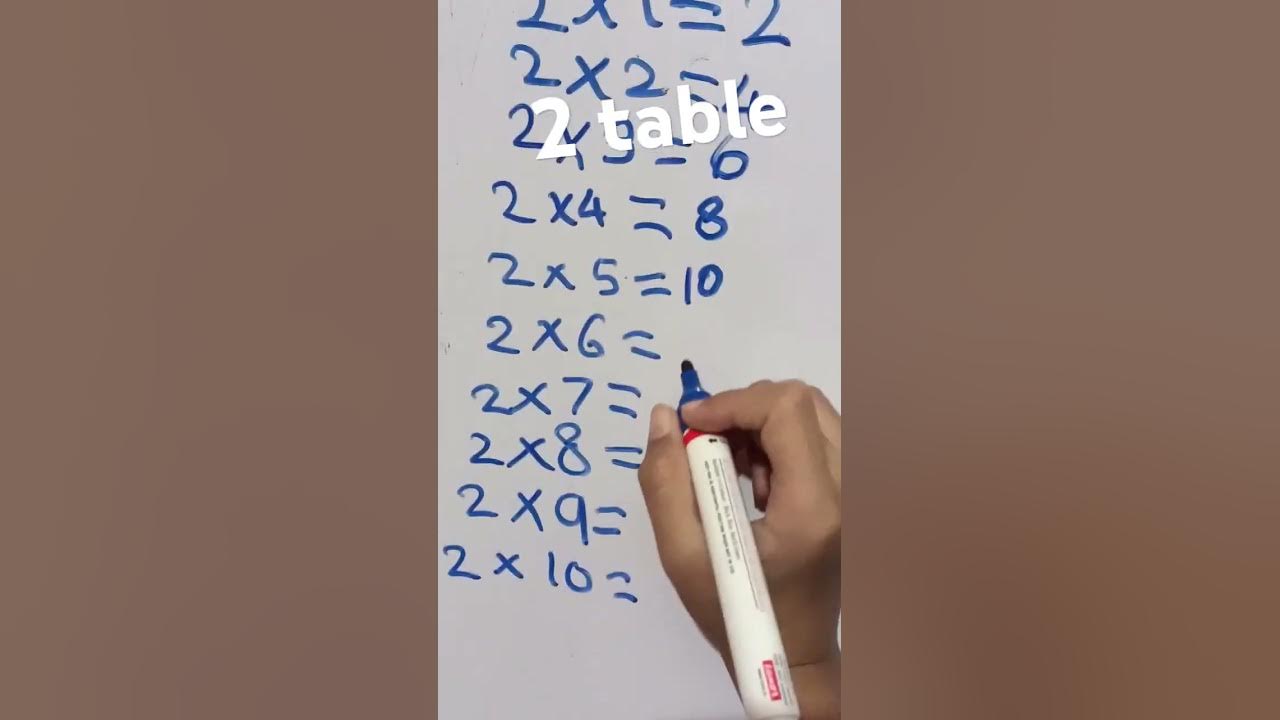 2×1=2
2×2=4
2 table
2×3=6
2×4=8
2×5=10
2×6=
2×7=
2×8=
2×9=
2×10=